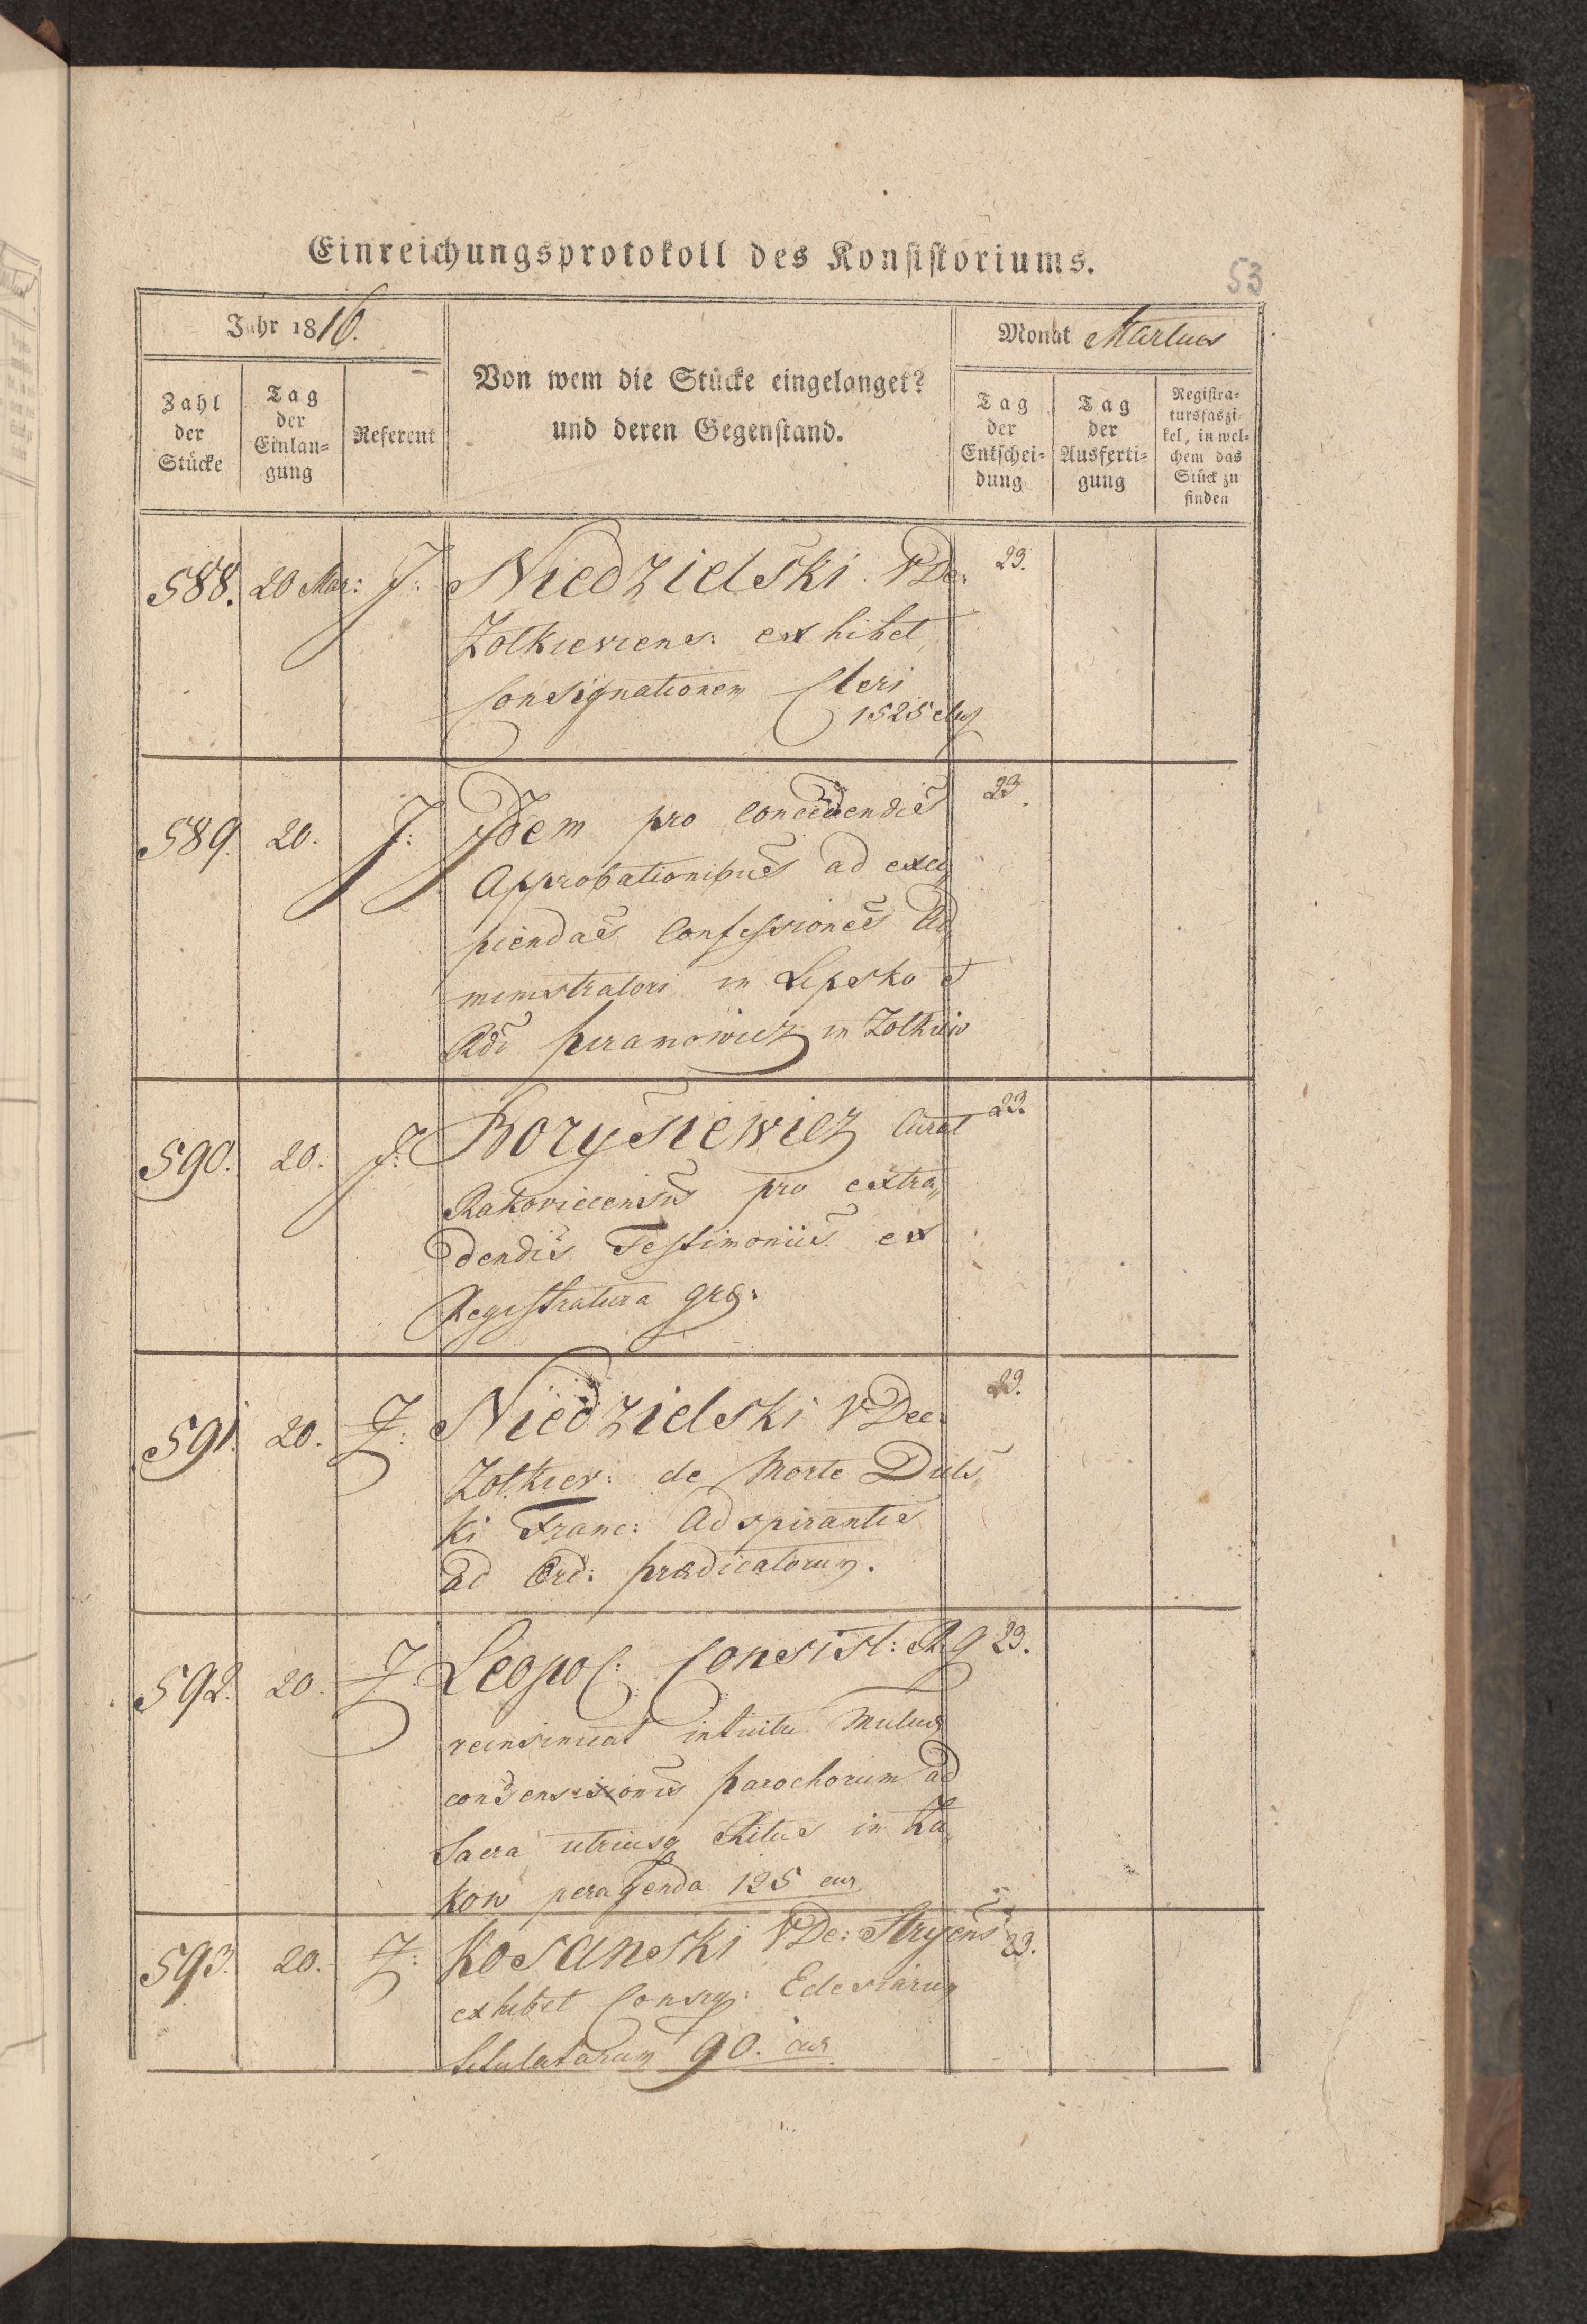 Einreichungsprotokoll des Konsistoriums.
53
Jahr 1816.
Monat Martius
Zahl der Stücke
Tag der Einlan=gung
Referent
Von wem die Stücke eingelanget?
und deren Gegenstand.
Tag der Entschei=dung
Tag der Ausferti=gung
Registra=tursfaszi=kel, in wel=chem das Stück zu finden
588. 20 Mar: J: Niedzielski VDe: 23.
Zolkieviens: exhibet
Consignationem Cleri
1525
589. 20. J: Idem pro concedendis 23.
Approbationibus ad exci
piendas Confessiones Ad
ministratori in Lipsko et
Rdi Piramowicz in Zolkiew
590. 20. J: Borysiewicz Curat 23.
Rakoviecensis pro extra
dendis Testimoniis ex
Registratura gra:
591. 20. J: Niedzielski VDec: 23.
Zolkiev: de Morte Duls
ki Franc: Adspirantis
ad Ord: praedicatorum.
592. 20. J: Leopol: Consist: Rg 23.
reinsinuat intuitu mutuae
condensionis parochorum ad
Sacra utriusq Ritus in
kow peragenda 125 cur
593. 20. J: Kosanski VDe: Stryens 23.
exhibet Consig: Eclesiarum
titulatarum 90. cur